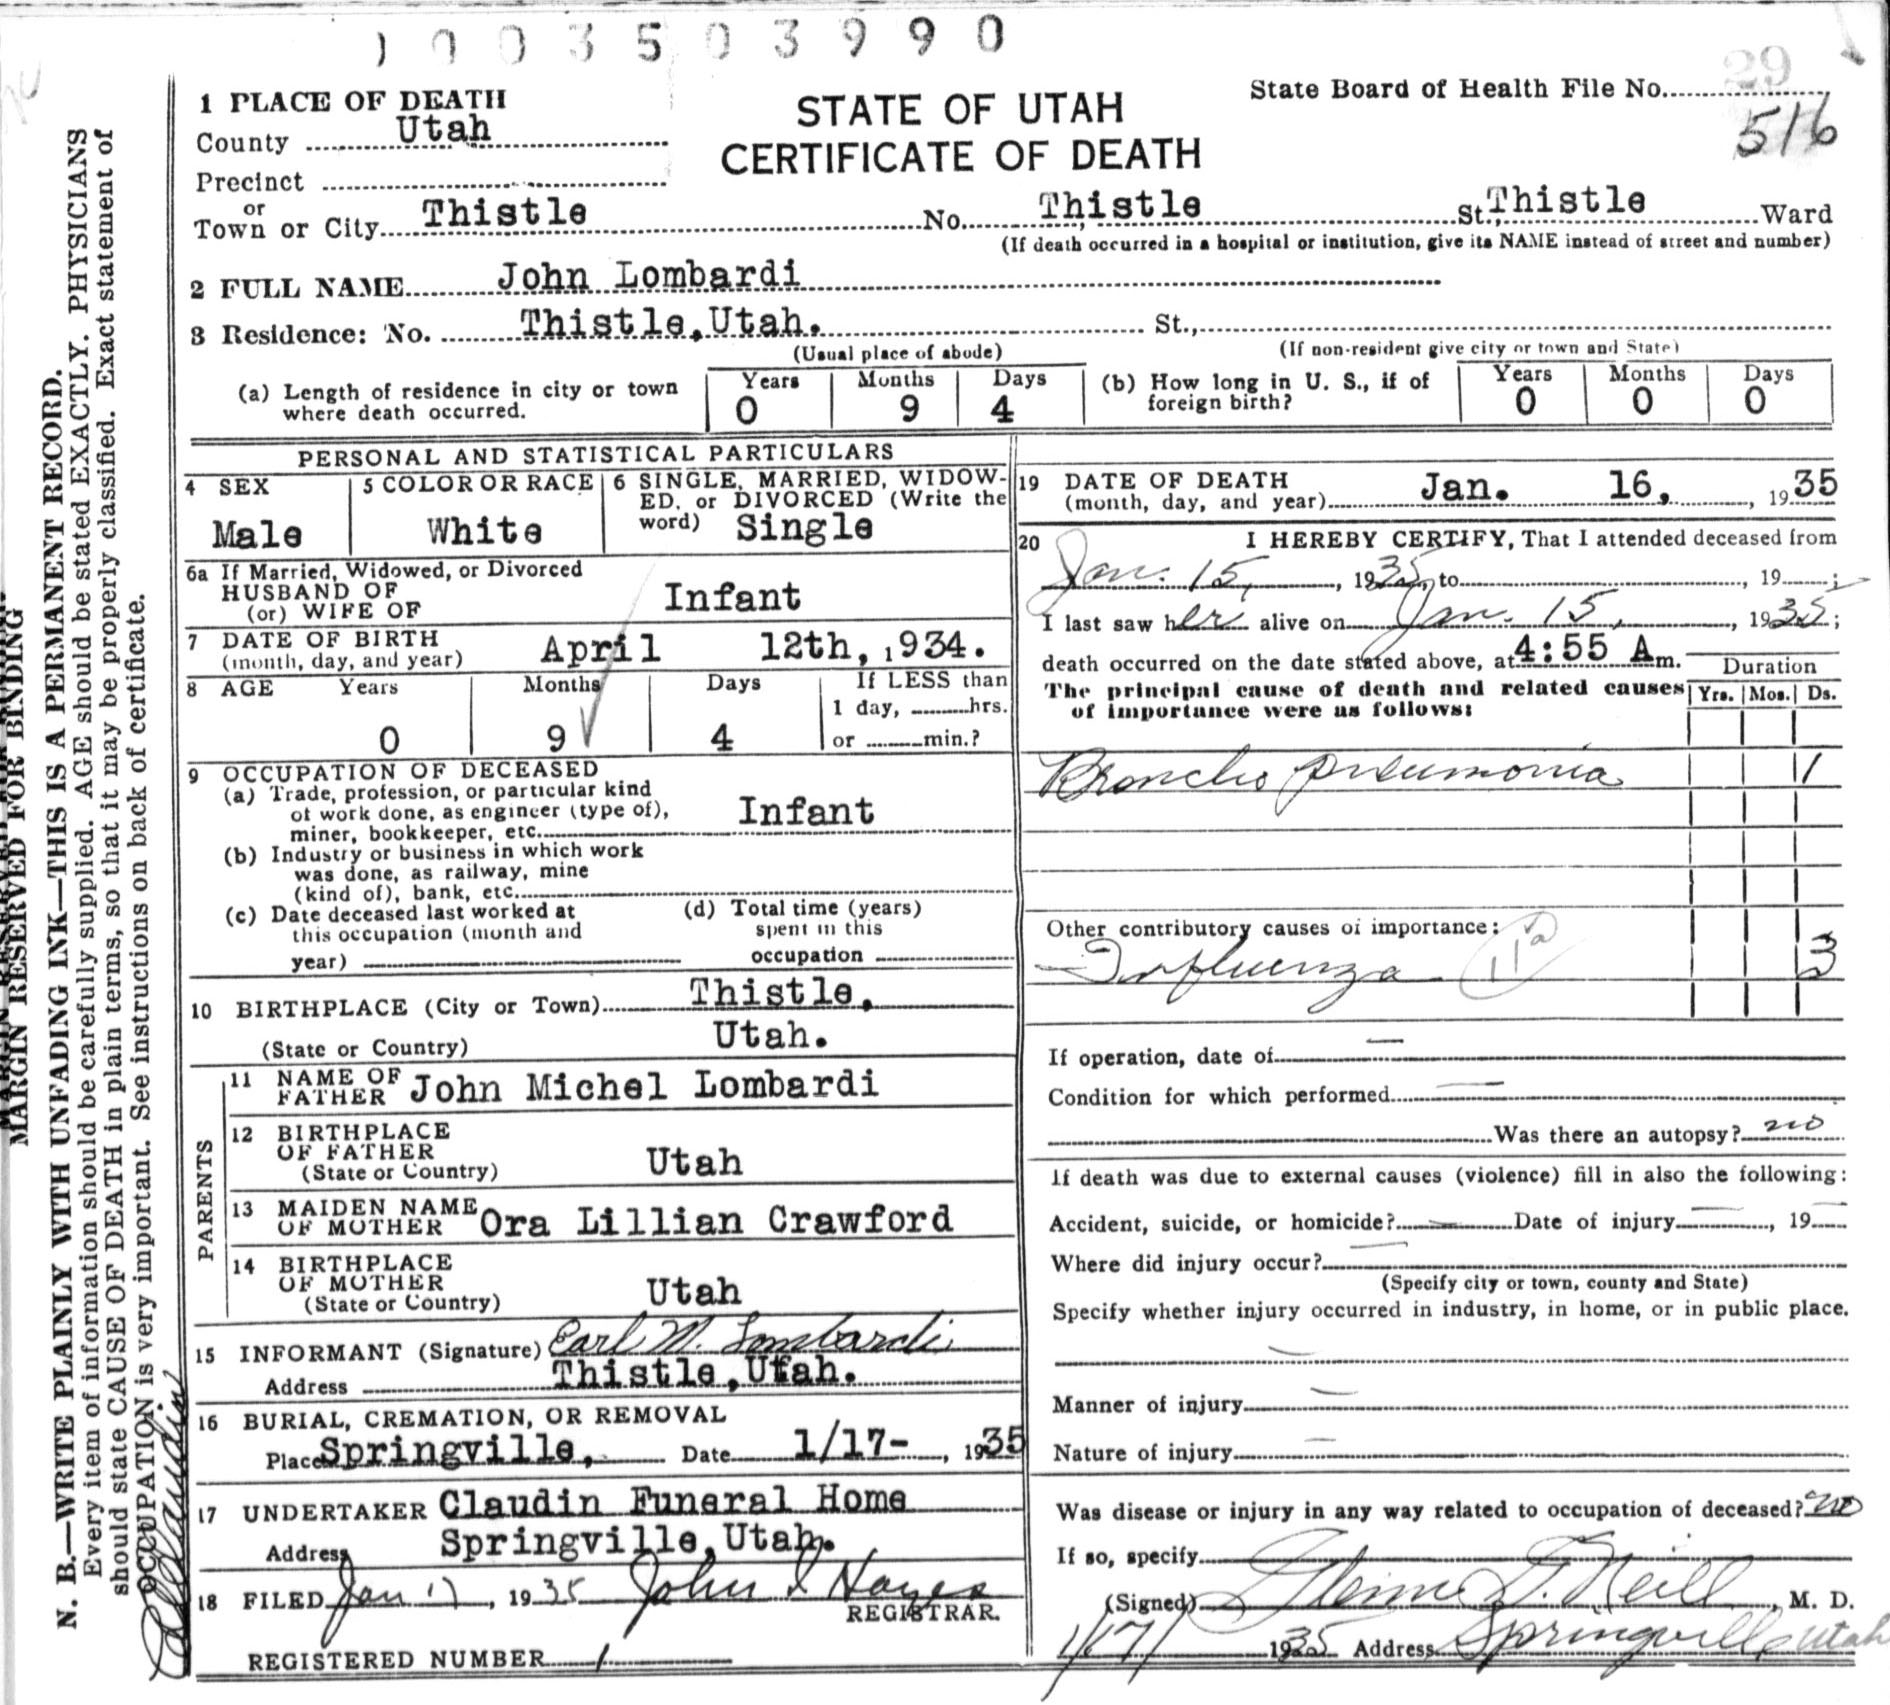 1003503990
29
1 PLACE OF DEATH
STATE OF UTAH
CERTIFICATE OF DEATH
State Board of Health File No.
516
County Utah
Precinct
or
Town or City Thistle No. Thistle St., Thistle Ward
(If death occurred in a hospital or institution, give its NAME instead of street and number)
2 FULL NAME John Lombardi
3 Residence: No. Thistle, Utah. St.,
(Usual place of abode) (If non-resident give city or town and State)
(a) Length of residence in city or town where death occurred. Years 0 Months 9 Days 4
(b) How long in U. S., if of foreign birth? Years 0 Months 0 Days 0
PERSONAL AND STATISTICAL PARTICULARS
4 SEX
Male
5 COLOR OR RACE
White
6 SINGLE, MARRIED, WIDOW-
ED, or DIVORCED (Write the
word) Single
6a If Married, Widowed, or Divorced
HUSBAND OF
(or) WIFE OF Infant
7 DATE OF BIRTH
(month, day, and year) April 12th, 1934.
8 AGE Years Months Days If LESS than
1 day, hrs.
0 9 4 or min.?
9 OCCUPATION OF DECEASED
(a) Trade, profession, or particular kind
of work done, as engineer (type of),
miner, bookkeeper, etc. Infant
(b) Industry or business in which work
was done, as railway, mine
(kind of), bank, etc.
(c) Date deceased last worked at
this occupation (month and
year)
(d) Total time (years)
spent in this
occupation
10 BIRTHPLACE (City or Town) Thistle,
(State or Country) Utah.
PARENTS
11 NAME OF
FATHER John Michel Lombardi
12 BIRTHPLACE
OF FATHER
(State or Country) Utah
13 MAIDEN NAME
OF MOTHER Ora Lillian Crawford
14 BIRTHPLACE
OF MOTHER
(State or Country) Utah
15 INFORMANT (Signature) Earl M. Lombardi
Address Thistle, Utah.
16 BURIAL, CREMATION, OR REMOVAL
Place Springville, Date 1/17-, 1935
17 UNDERTAKER Claudin Funeral Home
Address Springville, Utah.
18 FILED Jan 17, 1935 John S Hayes
REGISTRAR.
REGISTERED NUMBER 1
19 DATE OF DEATH
(month, day, and year) Jan. 16, 1935
20 I HEREBY CERTIFY, That I attended deceased from
Jan. 15, 1935, to , 19 ;
I last saw her alive on Jan. 15, 1935;
death occurred on the date stated above, at 4:55 A m.
The principal cause of death and related causes
of importance were as follows:
Duration
Yrs. Mos. Ds.
Broncho pneumonia 1
Other contributory causes of importance:
Influenza 11a 3
If operation, date of —
Condition for which performed —
Was there an autopsy? no
If death was due to external causes (violence) fill in also the following:
Accident, suicide, or homicide? — Date of injury — , 19
Where did injury occur? —
(Specify city or town, county and State)
Specify whether injury occurred in industry, in home, or in public place.
—
Manner of injury —
Nature of injury —
Was disease or injury in any way related to occupation of deceased? no
If so, specify
(Signed) Neill, M. D.
1/17/ 1935 Address Springville Utah
MARGIN RESERVED FOR BINDING
N. B.—WRITE PLAINLY WITH UNFADING INK—THIS IS A PERMANENT RECORD.
Every item of information should be carefully supplied. AGE should be stated EXACTLY. PHYSICIANS
should state CAUSE OF DEATH in plain terms, so that it may be properly classified. Exact statement of
OCCUPATION is very important. See instructions on back of certificate.